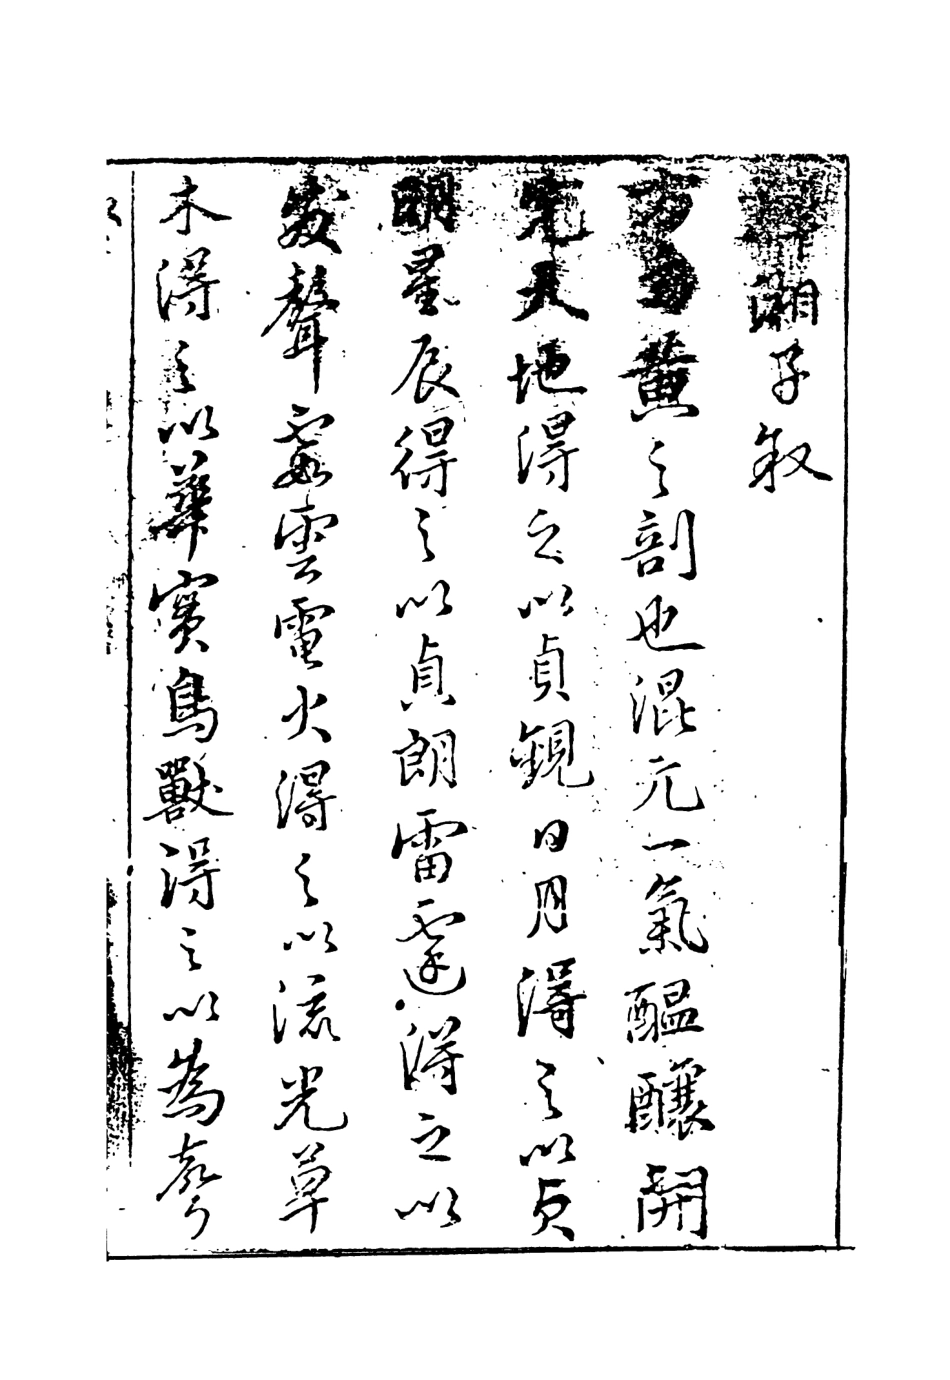 湘子敘
之剖也混元一氣醞釀開
先天地得之以貞觀日月得之以貞
明星辰得之以貞朗雷霆得之以
發聲霞雲電火得之以流光草
木得之以華實鳥獸得之以為